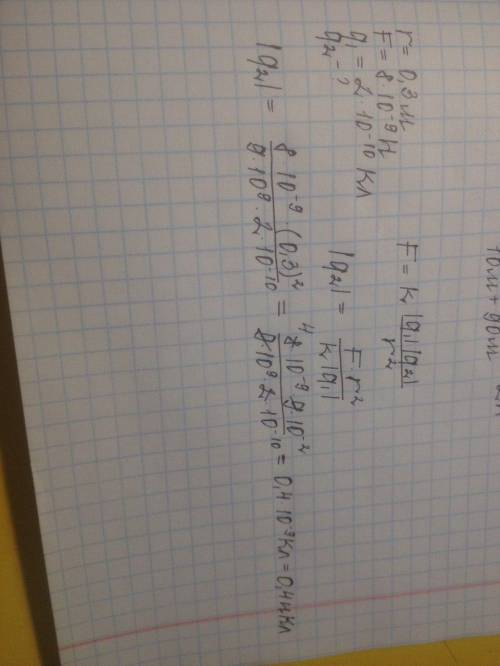 r = 0,3 м
F = 8·10⁻⁹ Н
q₁ = 2·10⁻¹⁰ Кл
q₂ - ?
F = k |q₁||q₂| / r²
|q₂| = F·r² / k|q₁|
|q₂| = 8 10⁻⁹ (0,3)² / 9·10⁹·2·10⁻¹⁰ = ⁴8·10⁻⁹·9·10⁻² / 9·10⁹·2·10⁻¹⁰ = 0,4 10⁻⁹ Кл = 0,4 нКл